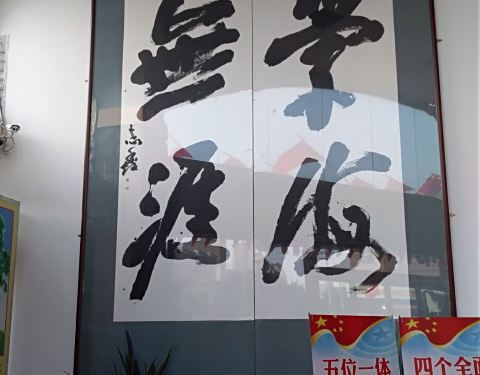 学海
無涯
志鑫
五位一体
四个全面